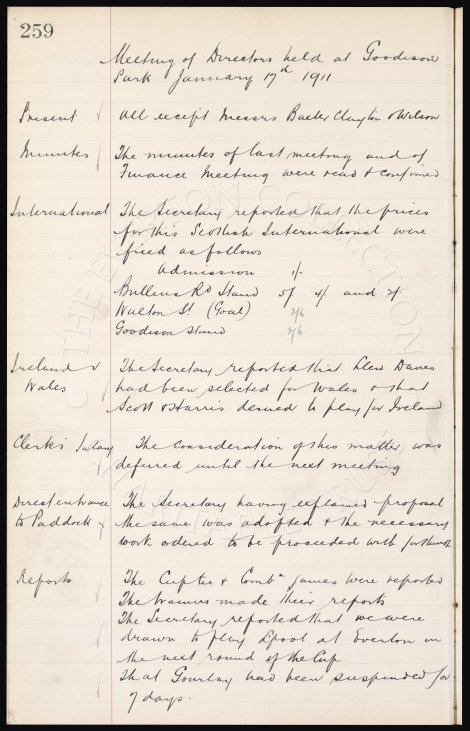 259
Meeting of Directors held at Goodison
Park January 17th 1911
Present All except Messrs Baxter Clayton & Wilson
Minutes The minutes of last meeting and of
Finance Meeting were read & confirmed
International The Secretary reported that the prices
for this Scottish International were
fixed as follows
Admission 1/-
Bullens Rd Stand 5/ 4/ and 2/
Walton St (Goal) 2/6
Goodison Stand 2/6
Ireland v The Secretary reported that Llew Davies
Wales had been selected for Wales & that
Scott & Harris desired to play for Ireland
Clerk's Salary The consideration of this matter was
deferred until the next meeting
Direct entrance The Secretary having explained proposal
to Paddock the same was adopted & the necessary
work ordered to be proceeded with forthwith
Reports The Cuptie & Combn games were reported
The trainers made their reports
The Secretary reported that we were
drawn to play Lpool at Everton in
the next round of the Cup
That Gourlay had been suspended for
7 days.